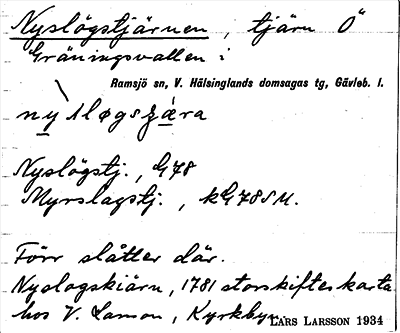 Nyslögstjärnen, tjärn Ö
Gräningsvallen i
Ramsjö sn, V. Hälsinglands domsagas tg, Gävleb. l.
Nyslögstj., G78
Myrslagstj., kG78SU.
Förr slåtter där.
Nyslogskiärn, 1781 storskifteskarta
hos V. Larson, Kyrkbyn.
LARS LARSSON 1934